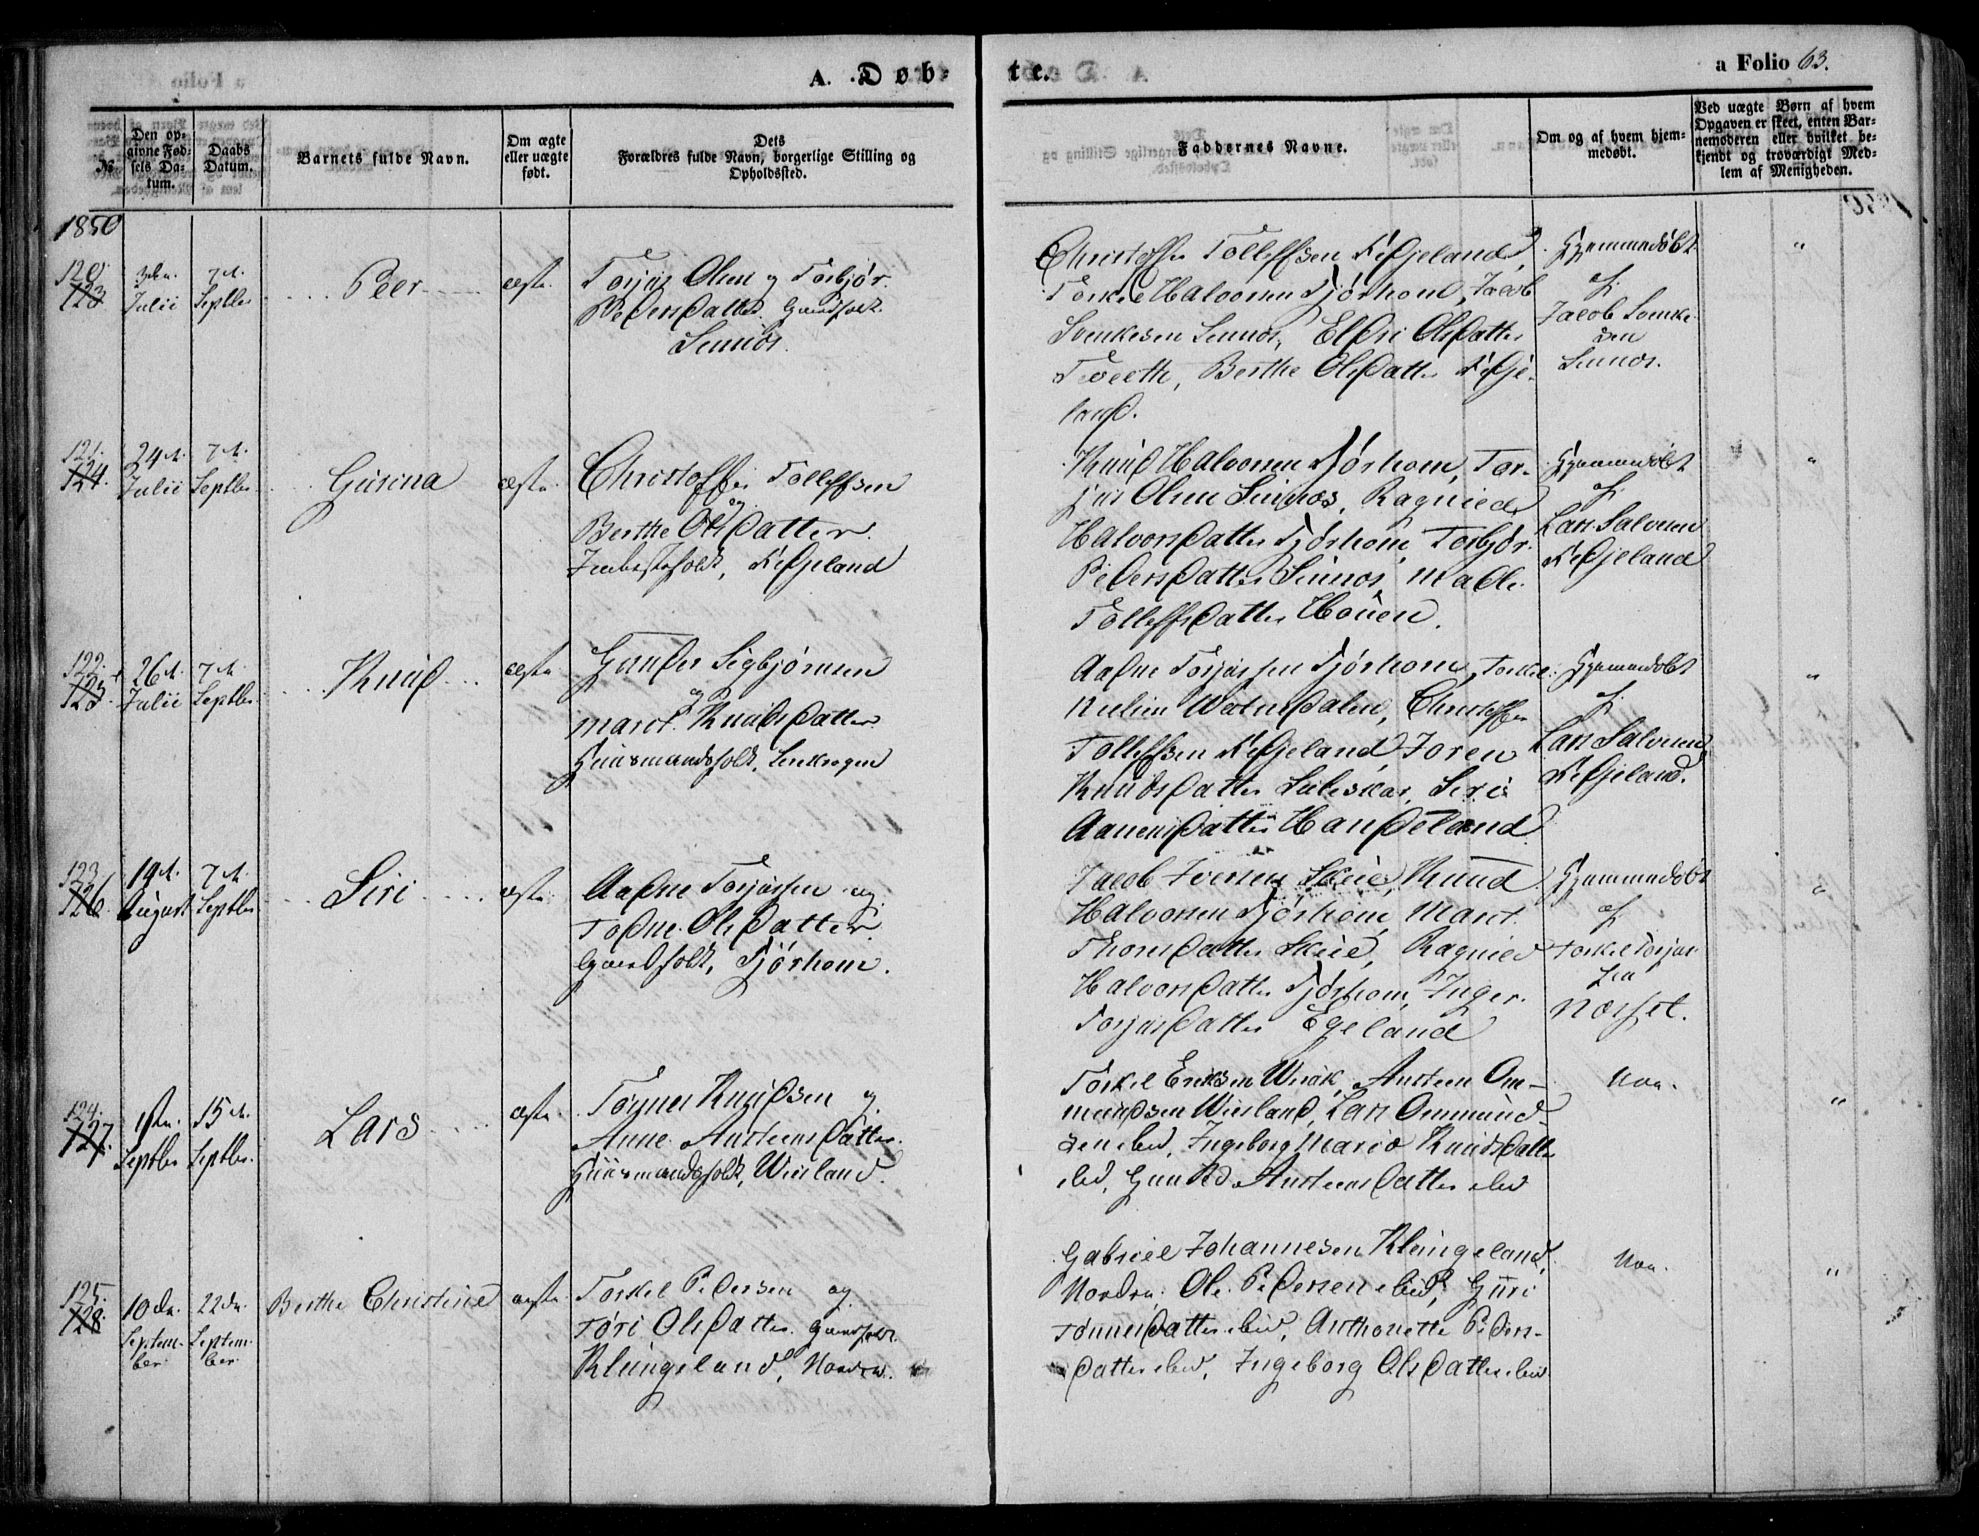 A. Døb-
te.
a Folio 63.
№
Den op-
givne Fød-
sels Da-
tum.
Daabs
Datum.
Barnets fulde Navn.
Om ægte
eller uægte
født.
Dets
Forældres fulde Navn, borgerlige Stilling og
Opholdssted.
Faddernes Navne.
Om og af hvem hjem-
medøbt.
Ved uægte Børn af hvem
Opgaven er skeet, enten Bar-
nemoderen eller hvilket be-
kjendt og troværdigt Med-
lem af Menigheden.
1850
120.
123
3de
Julii
7de
Septbr
Peer
ægte
Torjus Olsen og Torbjør
Pedersdatter. Gaardfolk.
Sinnes.
Christoffer Tolleffsen Fidjeland,
Torkel Halvorsen Tjørhom, Jacob
Sinnes, Eldri Olsdatter
Tveeth, Berthe Olsdatter Fidje-
land.
Hjemmedøbt
af
Jacob
sen
Sinnes.
"
121.
124.
24de
Julii
7de
Septbr
Gurina
ægte
Christoffer Tolleffsen
og
Berthe Olsdatter.
Fidjeland
Knud Halvorsen Tjørhom, Tor-
jus Olsen Sinnes, Ragnied
Halvorsdatter Tjørhom, Torbjør
Pedersdatter Sinnes, Malle
Tolleffsdatter Houen.
Hjemmedøbt
af
Lars Salvesen
Fidjeland
"
122.
125
26de
Julii
7de
Septbr
Knud
ægte
Gunder Sigbjørnsen
og
Marit Knudsdatter
Huusmandsfolk,
Aadne Torjussen Tjørhom, Torkel
Nielsen Christoffer
Tolleffsen Fidjeland, Joren
Knudsdatter Suleskar, Siri
Aanensdatter Handeland
Hjemmedøbt
af
Lars Salvesen
Fidjeland.
"
123.
126.
19de
August
7de
Septbr
Siri
ægte
Aadne Torjussen og
Todne Olsdatter.
Gaardfolk, Tjørhom.
Jacob Iversen Skeie, Knud
Halvorsen Tjørhom, Marit
Thorsdatter Skeie, Ragnied
Halvorsdatter Tjørhom, Inger
Torjusdatter Egeland
Hjemmedøbt
af
Torkel Torjus-
sen
Næsset.
"
124.
127.
1ste
Septbr
15de
Septbr.
Lars
ægte
Tønnes Knudsen og
Anne Austeensdatter.
Huusmandsfolk, Wirland.
Torkel Eriksen Wirak, Austeen Om-
mundsen Wirland, Lars Ommund-
sen ibid, Ingeborg Maria Knudsdatter
ibid, Gunild Austeensdatter ibid
Nei.
"
125.
128.
10de
Septem-
ber
22de
Septem-
ber
Berthe Christine
ægte
Torkel Pedersen og
Tøri Olsdatter. Gaardfolk
Klungeland, Nordre.
Gabriel Johannesen Klungeland,
Nordre, Ole Pedersen ibid, Guri
Tønnesdatter ibid, Anthonette Peders-
datter ibid, Ingeborg Olsdatter ibid
Nei.
"